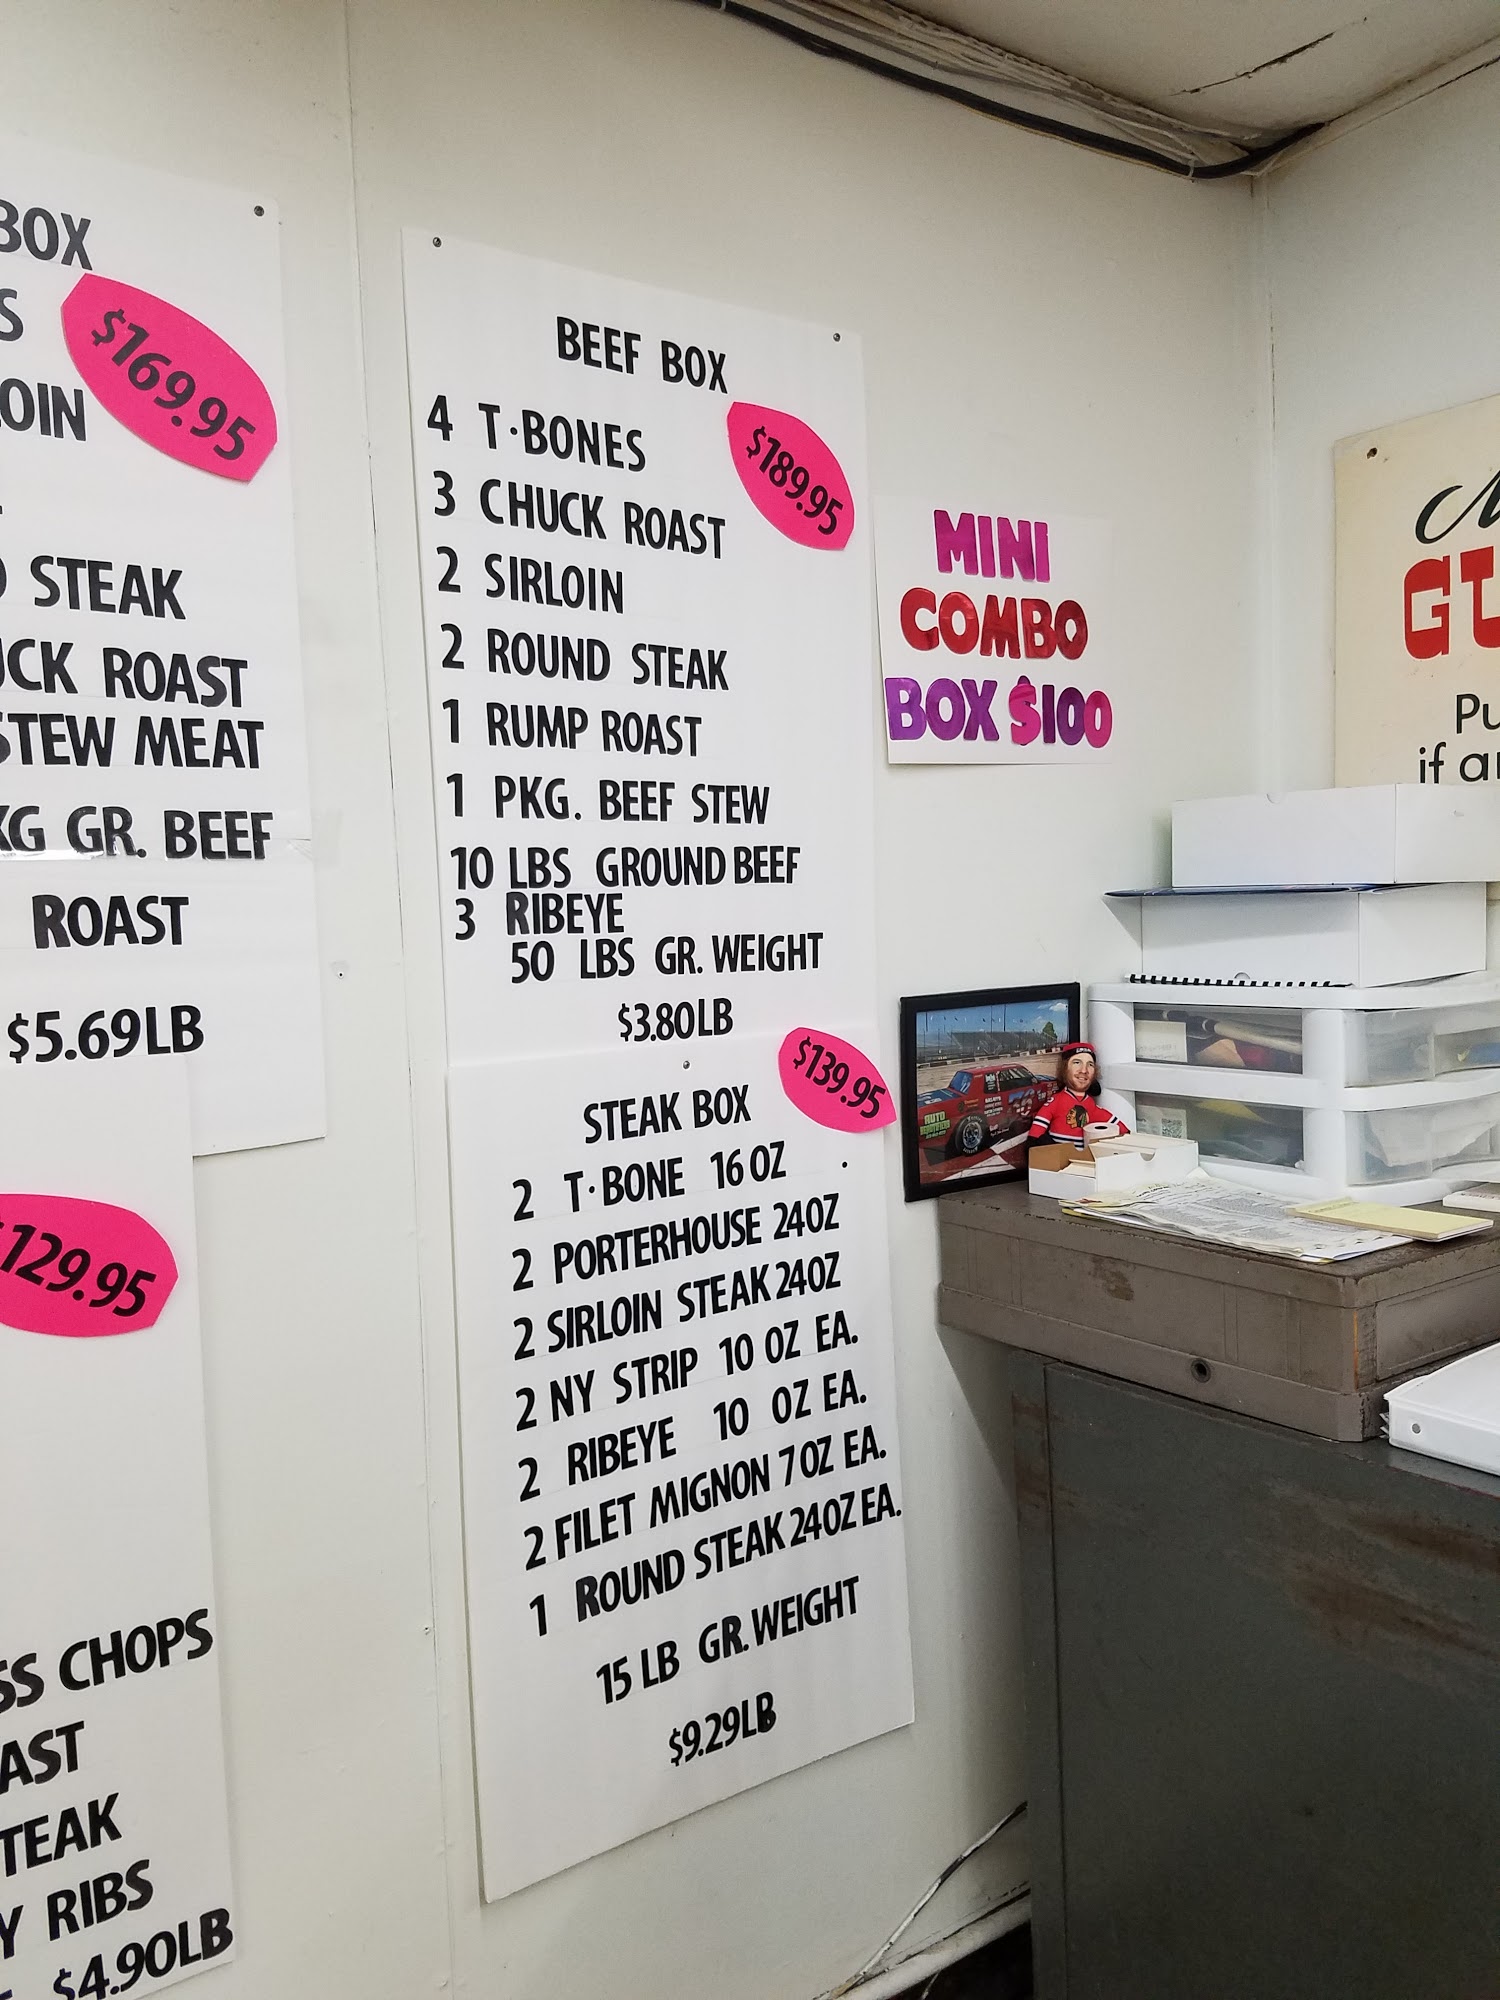 BOX
$169.95
STEAK
ROAST
STEW MEAT
GR. BEEF
ROAST
$5.69LB
$129.95
CHOPS
RIBS
$4.90LB
BEEF BOX
$189.95
4 T·BONES
3 CHUCK ROAST
2 SIRLOIN
2 ROUND STEAK
1 RUMP ROAST
1 PKG. BEEF STEW
10 LBS GROUND BEEF
3 RIBEYE
50 LBS GR. WEIGHT
$3.80LB
STEAK BOX
$139.95
2 T·BONE 16 OZ
2 PORTERHOUSE 24OZ
2 SIRLOIN STEAK 24OZ
2 NY STRIP 10 OZ EA.
2 RIBEYE 10 OZ EA.
2 FILET MIGNON 7OZ EA.
1 ROUND STEAK 24OZ EA.
15 LB GR. WEIGHT
$9.29LB
MINI
COMBO
BOX $100
GU
Pu
if an
AUTO